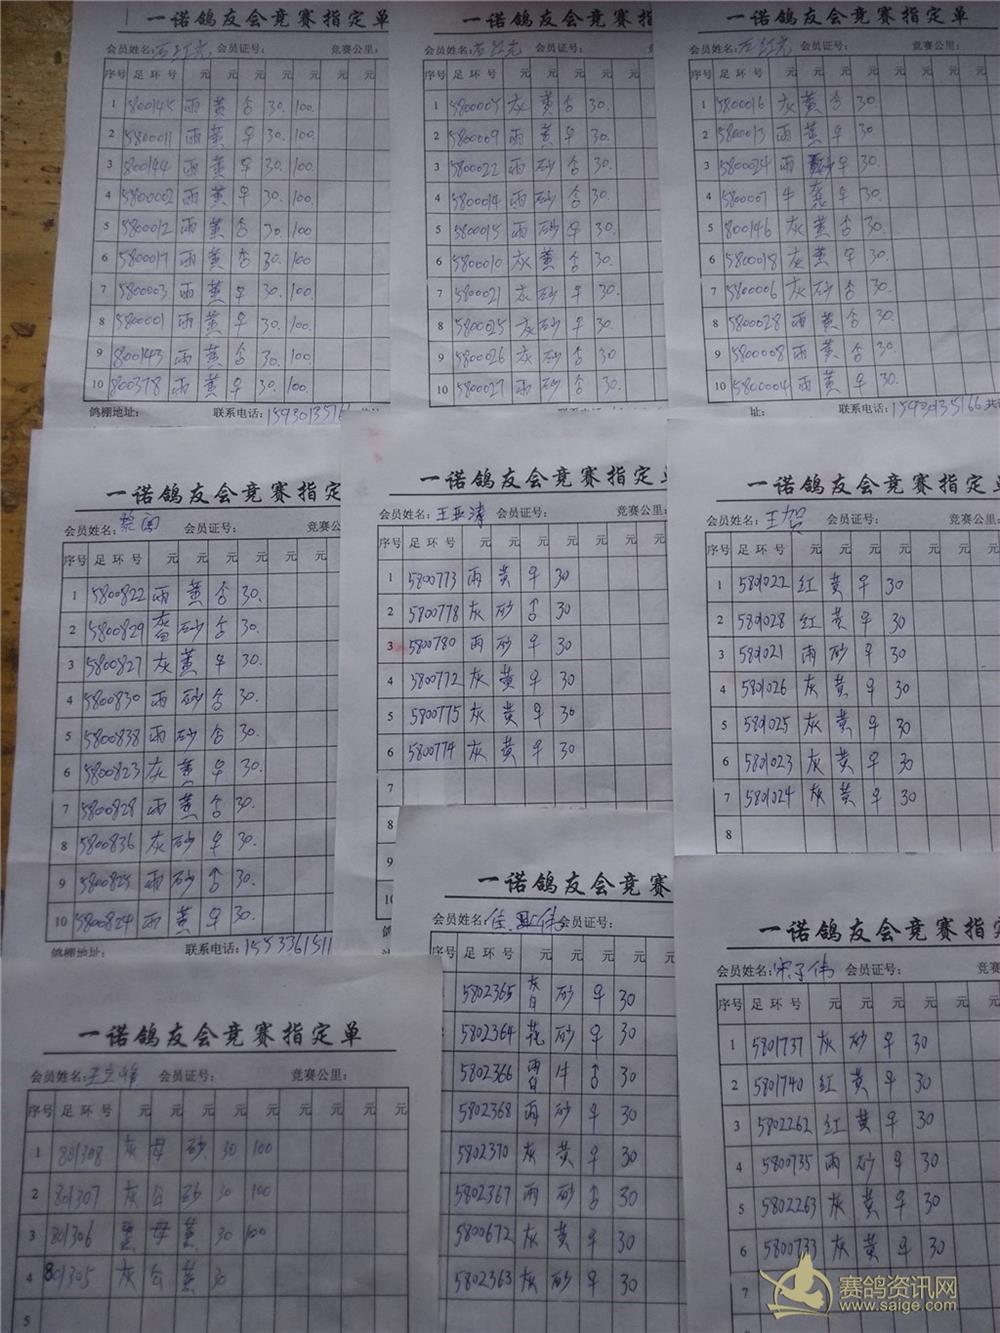 一诺鸽友会竞赛指定单
会员姓名: 会员证号: 竞赛公里:
序号 足环号 元 元 元 元 元 元
1 5800145 雨 黄 30. 100.
2 5800011 雨 黄 30. 100.
3 5800144 雨 黄 30. 100.
4 5800002 雨 黄 30. 100.
5 5800012 雨 黄 30 100
6 5800017 雨 黄 30. 100
7 5800003 雨 黄 30. 100.
8 5800001 雨 黄 30. 100.
9 800143 雨 黄 30. 100
10 800378 雨 黄 30. 100.
鸽棚地址: 联系电话:
一诺鸽友会竞赛指
会员姓名: 会员证号: 竞赛公里
序号 足环号 元 元 元 元 元
1 灰 黄 30.
2 5800009 雨 黄 30.
3 5800022 雨 砂 30.
4 5800014 雨 砂 30.
5 5800015 雨 砂 30.
6 5800010 灰 黄 30.
7 5800021 灰 砂 30.
8 5800025 灰 砂 30.
9 5800026 灰 砂 30.
10 5800027 雨 砂 30.
联系电话:
一诺鸽友会竞赛指定单
会员姓名: 会员证号: 竞赛公里:
序号 足环号 元 元 元 元 元 元
1 5800016 灰 黄 30
2 5800013 雨 黄 30
3 5800024 雨 砂 30.
4 30.
5 5800146 灰 黄 30.
6 5800018 灰 黄 30.
7 5800006 灰 砂 30.
8 5800028 雨 黄 30.
9 5800008 雨 黄 30.
10 5800004 雨 黄 30.
址: 联系电话:15930135166
一诺鸽友会竞赛指定
会员姓名: 会员证号: 竞赛公
序号 足环号 元 元 元 元 元
1 5800822 雨 黄 30.
2 5800829 砂 30.
3 5800827 灰 黄 30.
4 5800830 雨 砂 30.
5 5800838 雨 砂 30.
6 5800823 灰 黄 30.
7 5800828 雨 黄 30.
8 5800836 灰 砂 30.
9 5800825 雨 砂 30.
10 5800824 雨 黄 30.
鸽棚地址: 联系电话:
一诺鸽友会竞赛指定
会员姓名: 会员证号: 竞赛公里:
序号 足环号 元 元 元 元 元
1 5800773 雨 黄 ♀ 30
2 5800778 灰 砂 ♂ 30
3 5800780 雨 砂 ♀ 30
4 5800772 灰 黄 ♀ 30
5 5800775 灰 黄 ♀ 30
6 5800774 灰 黄 ♀ 30
7
8
9
10
一诺鸽友会竞赛指定
会员姓名:王贺 会员证号: 竞赛公
序号 足环号 元 元 元 元 元
1 5801022 红 黄 ♀ 30
2 5801028 红 黄 ♀ 30
3 5801021 雨 砂 ♀ 30
4 5801026 灰 黄 ♀ 30
5 5801025 灰 黄 ♀ 30
6 5801023 灰 黄 ♀ 30
7 5801024 灰 黄 ♀ 30
8
一诺鸽友会竞赛
会员姓名: 会员证号:
序号 足环号 元 元 元 元
5802365 灰白 砂 ♀ 30
5802364 花 砂 ♀ 30
5802366 雨白 ♂ 30
5802368 雨 砂 ♀ 30
5802370 灰 黄 ♀ 30
5802367 雨 砂 ♂ 30
5800672 灰 黄 ♀ 30
5802363 灰 砂 ♀ 30
一诺鸽友会竞赛指
会员姓名:宋子伟 会员证号: 竞赛
序号 足环号 元 元 元 元 元
1 5801737 灰 砂 ♀ 30
2 5801740 红 黄 ♀ 30
3 5802262 红 黄 ♀ 30
4 5800735 雨 砂 ♀ 30
5 5802263 灰 黄 ♀ 30
6 5800733 灰 黄 ♀ 30
7
一诺鸽友会竞赛指定单
会员姓名: 会员证号: 竞赛公里:
序号 足环号 元 元 元 元 元 元
1 801308 灰 母 砂 30 100
2 801307 灰 公 砂 30 100
3 801306 母 黄 30 100
4 801305 灰 公 黄 30
5
赛鸽资讯网
www.saige.com